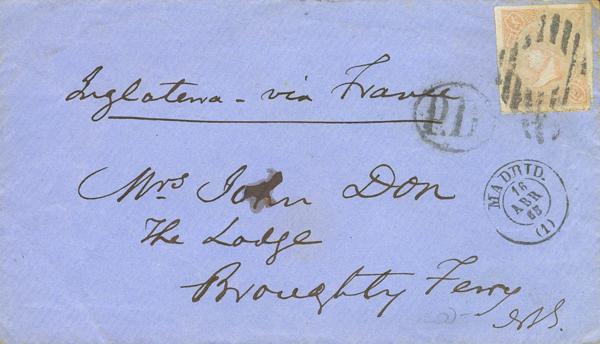 Inglaterra - via France
P.D.
Mrs John Don
The Lodge
Broughty Ferry
MADRID.
16
ABR
65
(1)